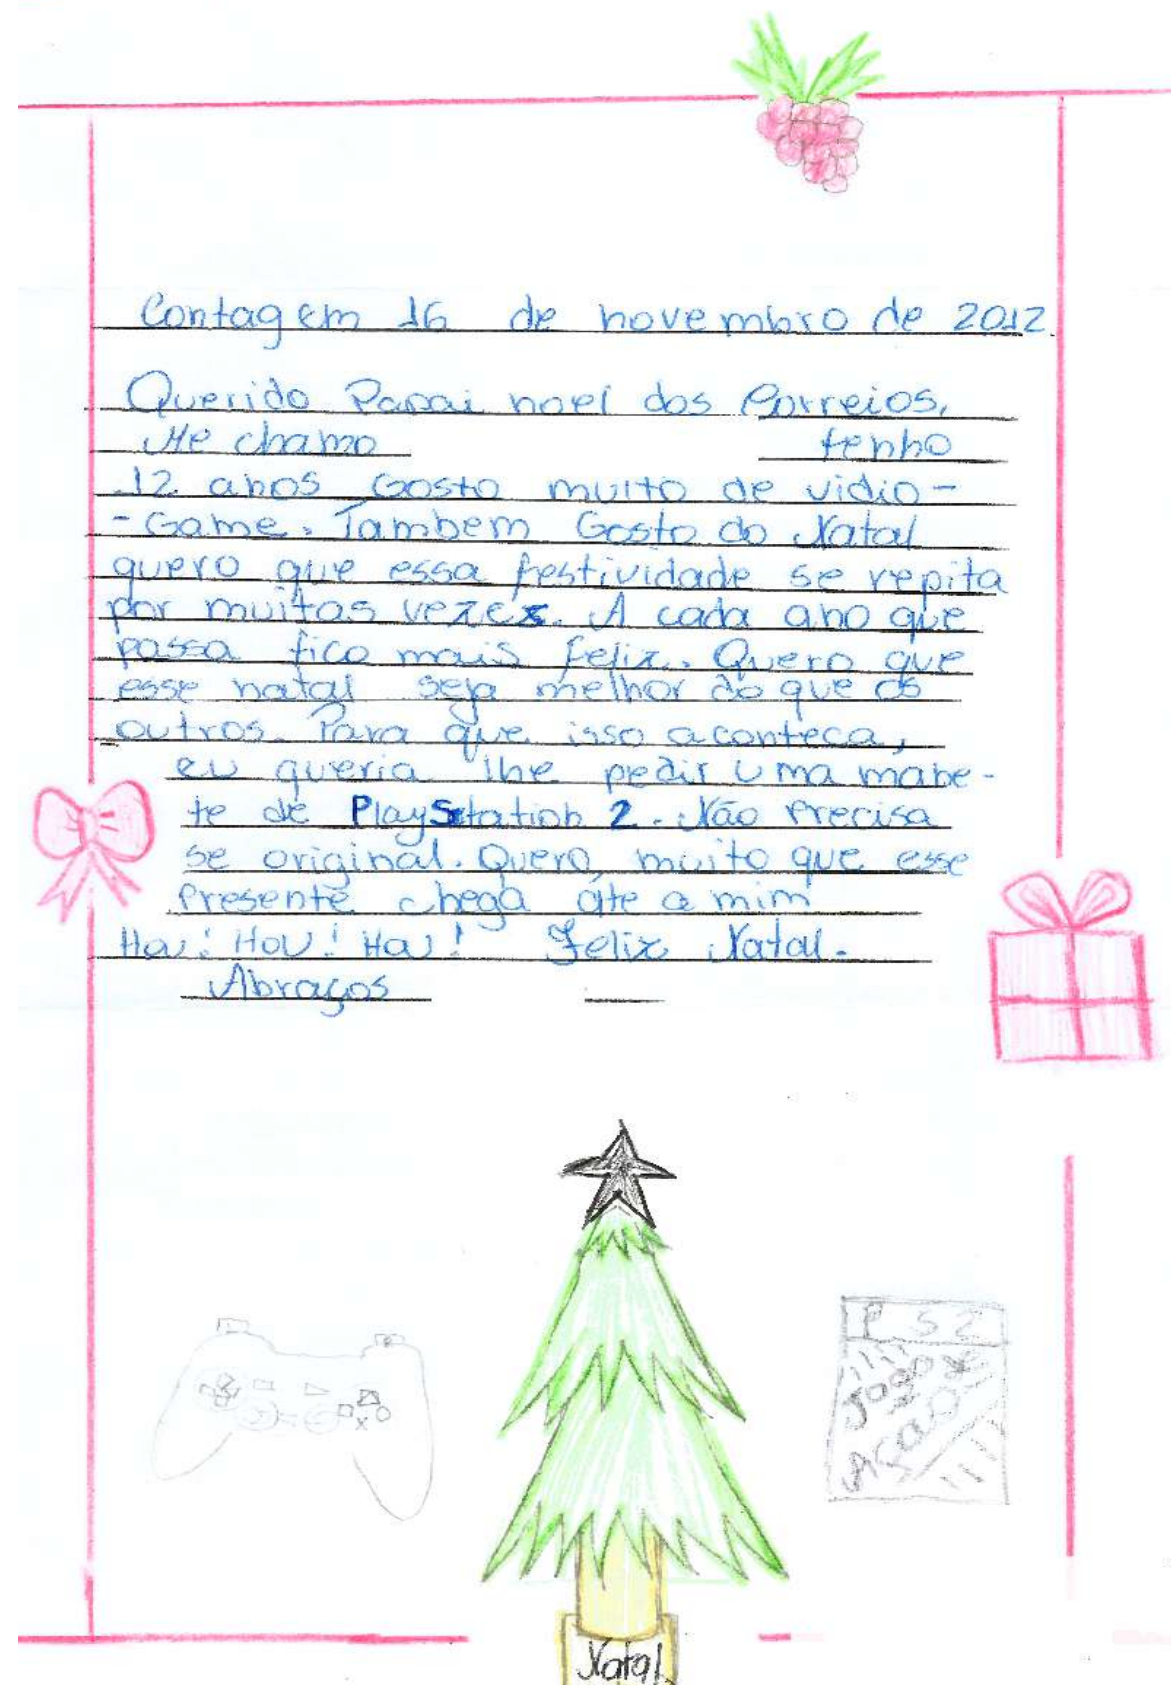 Contagem 16 de novembro de 2012.
Querido Papai noel dos Correios,
Me chamo tenho
12 anos Gosto muito de vidio-
-Game. Tambem Gosto do Natal
quero que essa festividade se repita
por muitas vezes. A cada ano que
passa fico mais feliz. Quero que
esse natal seja melhor do que os
outros. Para que isso aconteca,
eu queria lhe pedir uma mane-
te de PlayStation 2. Não Precisa
se original. Quero, muito que esse
Presente chega ate a mim
Hou! Hou! Hou! Feliz Natal.
Abraços
P S 2
Jogo
Ação
Natal